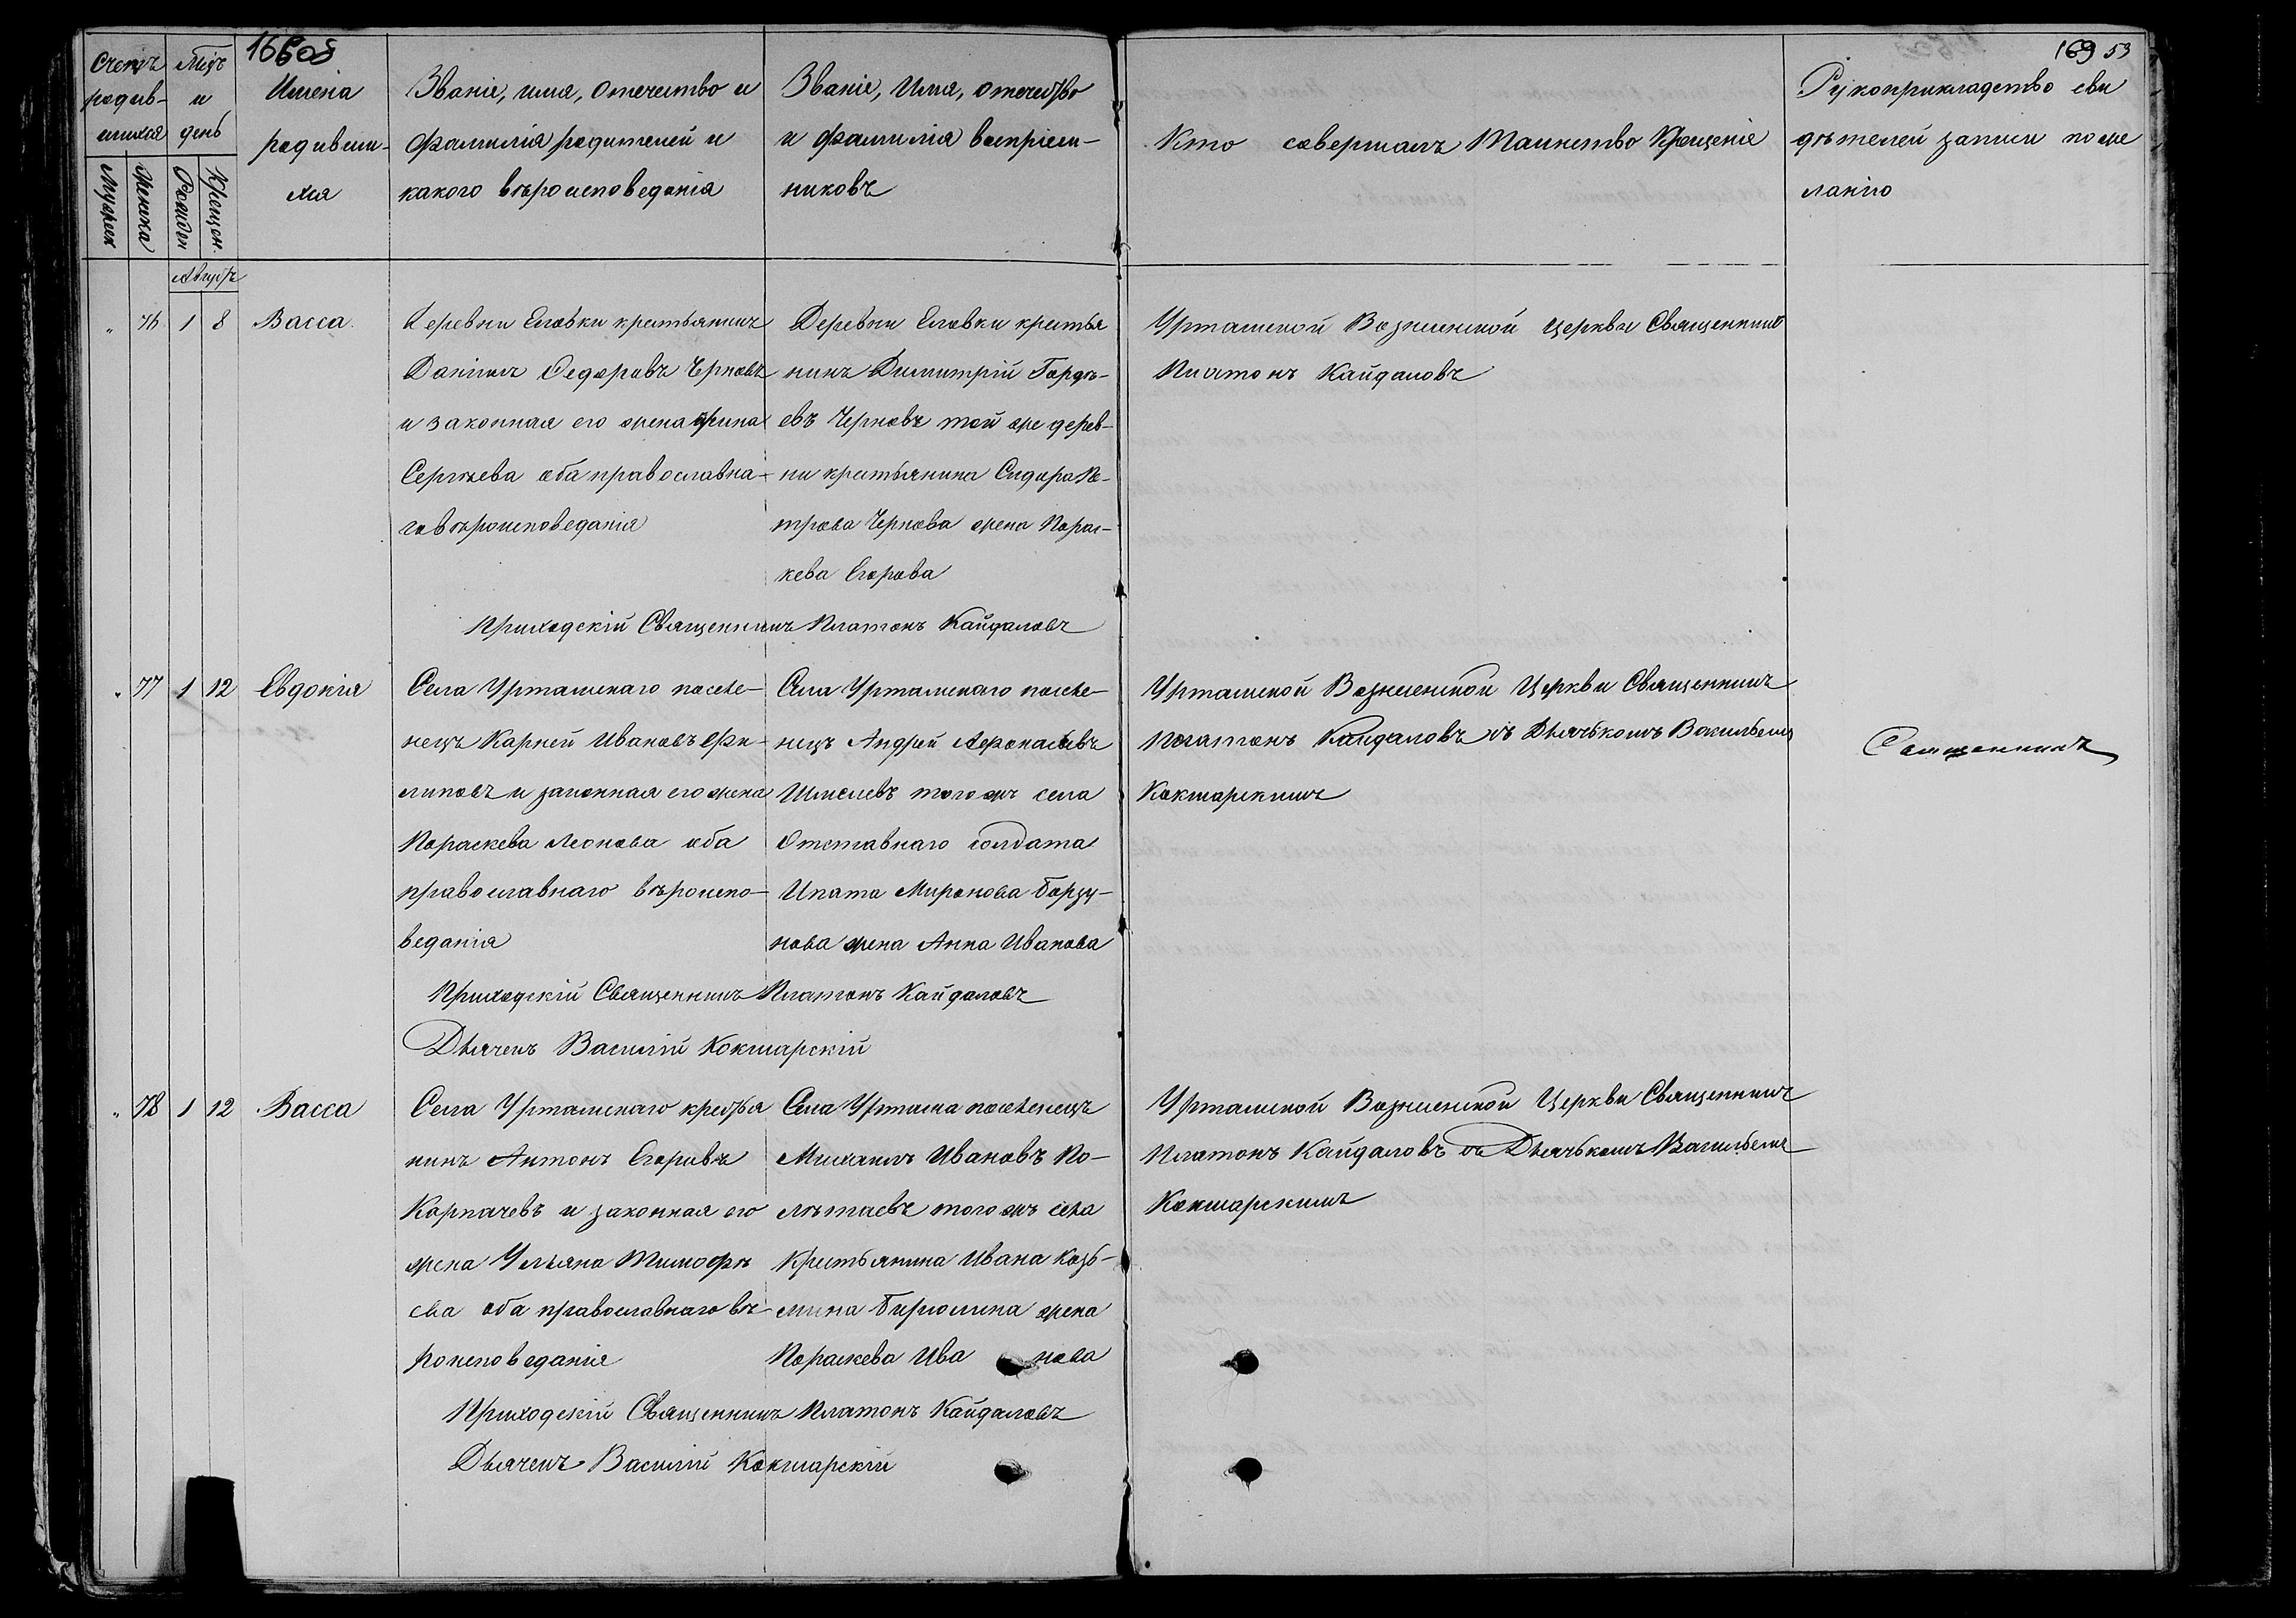 168 об
169 53
Счетъ родив-шихся
Мцъ и день
Имена родивши-хся
Званіе, имя, отечество и фамилія родителей и какого вѣроисповеданія
Званіе, Имя, отечество и фамилія воспріем-никовъ
Кто совершалъ Таинство Крещенія
Рукоприкладство сви дѣтелей записи по же ланію
Мужеск
Женска
Рожден
Крещен.
Августъ
" 76 1 8 Васса.
Деревни Еловки крестьянинъ
Даніилъ Федоровъ Черновъ
и законная его жена Ирина
Сергѣева оба православна-
го вѣроисповеданія
Деревни Еловки крестья
нинъ Димитрій Гордѣ-
евъ Черновъ той же дерев-
ни крестьянина Сидора Пе-
трова Чернова жена Парас-
кева Егорова
Урташской Вознесенской церкви Священникъ
Платонъ Кайдаловъ
Приходскій Священникъ Платонъ Кайдаловъ
" 77 1 12 Евдокія
Села Урташскаго поселе-
нецъ Карней Ивановъ Фи-
липовъ и законная его жена
Параскева Леонова оба
православнаго вѣроиспо-
веданія
Села Урташскаго поселе-
нецъ Андрей Афонасьевъ
Шмелевъ того жъ села
Отставнаго солдата
Ипата Миронова Борзу-
нова жена Анна Иванова
Урташской Вознесенской Церкви Священникъ
Платонъ Кайдаловъ съ Дьячькомъ Васильемъ
Кокшарскимъ
Священникъ
Приходскій Священникъ Платонъ Кайдаловъ
Дьячекъ Василій Кокшарскій
" 78 1 12 Васса
Села Урташскаго крестья
нинъ Антонъ Егоровъ
Карпачевъ и законная его
жена Ульяна Тимофѣ
ева оба православнаго вѣ-
роисповеданія
Села Урташа поселенецъ
Михаилъ Ивановъ По-
лѣтаевъ того жъ села
Крестьянина Ивана Козь-
мина Бирюлина жена
Параскева Иванова
Урташской Вознесенской Церкви Священникъ
Платонъ Кайдаловъ съ Дьячькомъ Васильемъ
Кокшарскимъ
Приходскій Священникъ Платонъ Кайдаловъ
Дьячекъ Василій Кокшарскій